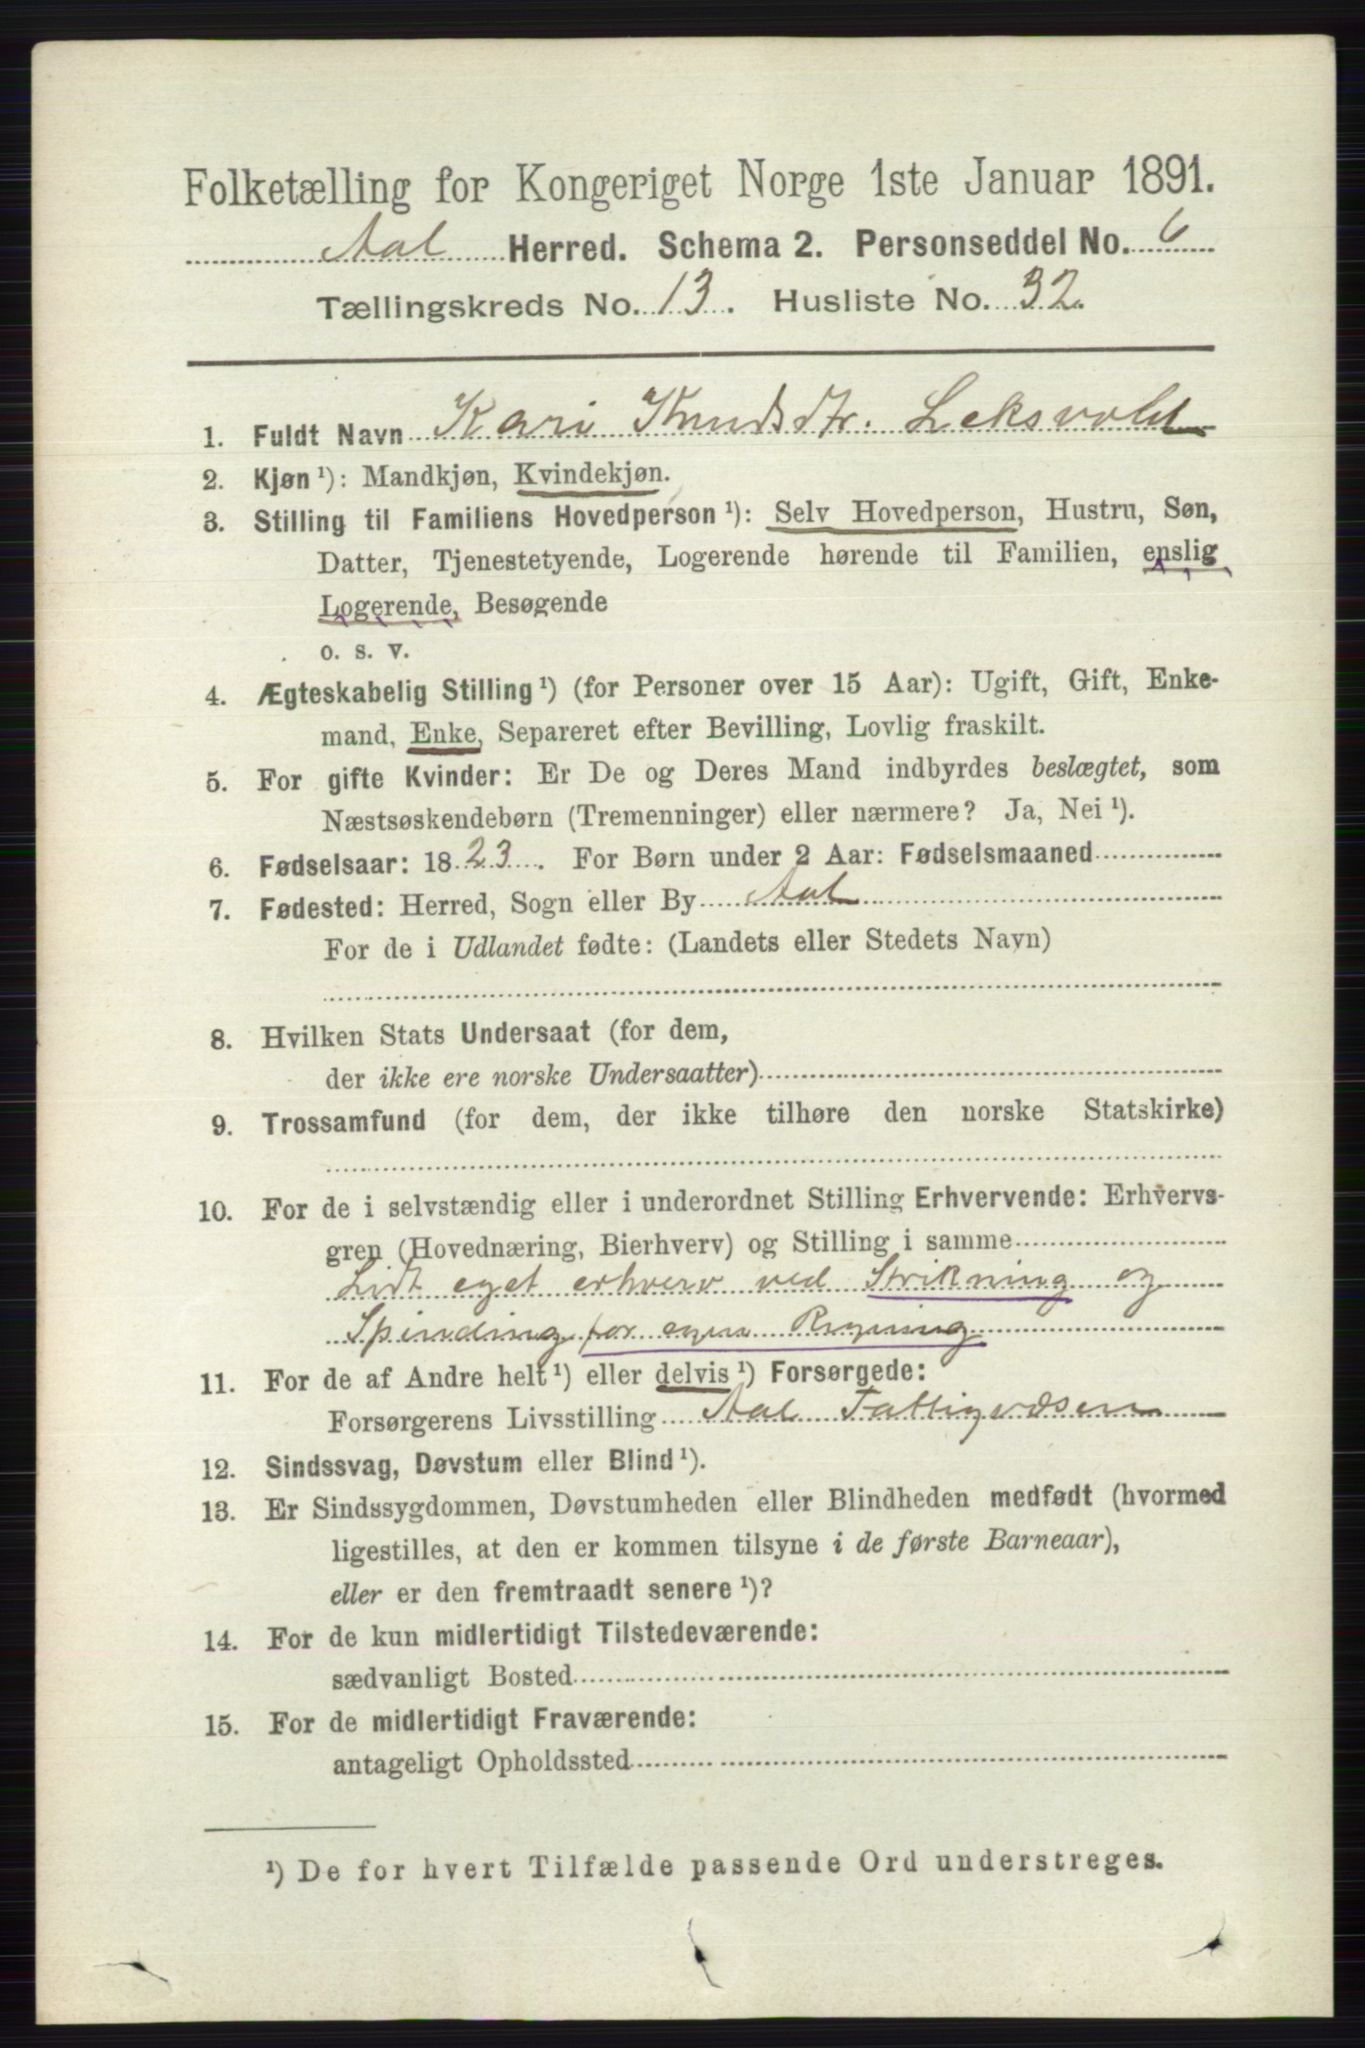 Folketælling for Kongeriget Norge 1ste Januar 1891.
Aal Herred. Schema 2. Personseddel No. 6
Tællingskreds No. 13. Husliste No. 32.
1. Fuldt Navn Kari Knudsdtr. Leksvold
2. Kjøn ¹): Mandkjøn, Kvindekjøn.
3. Stilling til Familiens Hovedperson ¹): Selv Hovedperson, Hustru, Søn,
Datter, Tjenestetyende, Logerende hørende til Familien, enslig
Logerende, Besøgende
o. s. v.
4. Ægteskabelig Stilling ¹) (for Personer over 15 Aar): Ugift, Gift, Enke-
mand, Enke, Separeret efter Bevilling, Lovlig fraskilt.
5. For gifte Kvinder: Er De og Deres Mand indbyrdes beslægtet, som
Næstsøskendebørn (Tremenninger) eller nærmere? Ja, Nei ¹).
6. Fødselsaar: 1823. For Børn under 2 Aar: Fødselsmaaned
7. Fødested: Herred, Sogn eller By Aal
For de i Udlandet fødte: (Landets eller Stedets Navn)
8. Hvilken Stats Undersaat (for dem,
der ikke ere norske Undersaatter)
9. Trossamfund (for dem, der ikke tilhøre den norske Statskirke)
10. For de i selvstændig eller i underordnet Stilling Erhvervende: Erhvervs-
gren (Hovednæring, Bierhverv) og Stilling i samme
Lidt eget erhverv ved Strikning og
Spinding for egen Regning
11. For de af Andre helt ¹) eller delvis ¹) Forsørgede:
Forsørgerens Livsstilling Aal Fattigvæsen
12. Sindssvag, Døvstum eller Blind ¹).
13. Er Sindssygdommen, Døvstumheden eller Blindheden medfødt (hvormed
ligestilles, at den er kommen tilsyne i de første Barneaar),
eller er den fremtraadt senere ¹)?
14. For de kun midlertidigt Tilstedeværende:
sædvanligt Bosted
15. For de midlertidigt Fraværende:
antageligt Opholdssted
¹) De for hvert Tilfælde passende Ord understreges.